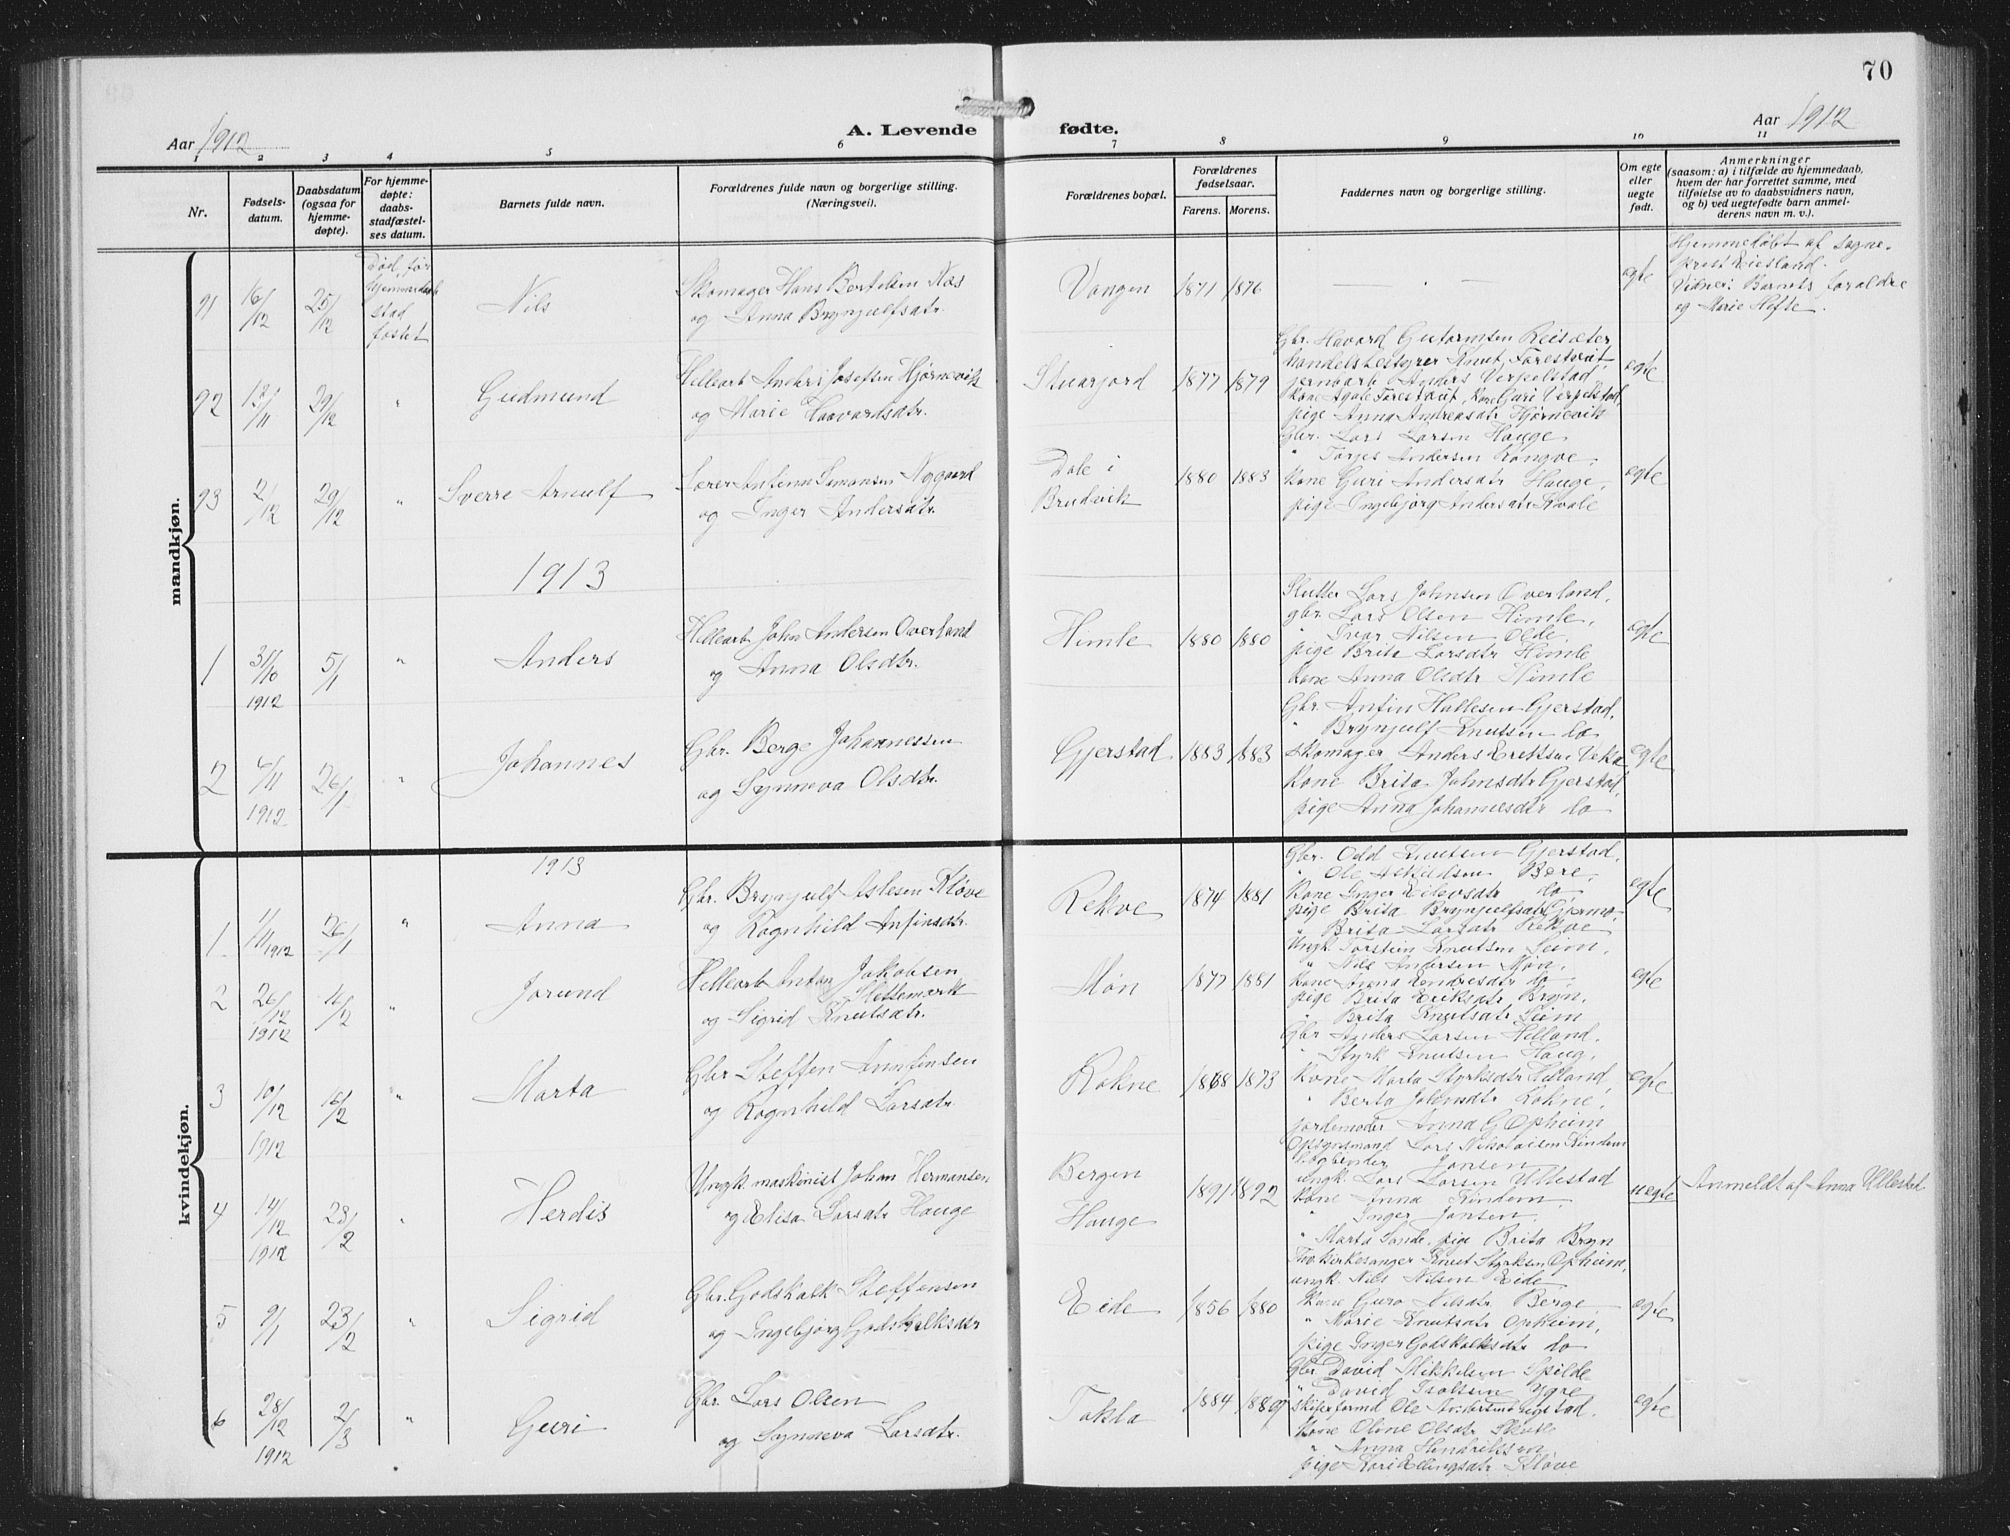 70
Aar 1912
A. Levende fødte.
Aar 1912
1 2 3 4 5 6 7 8 9 10 11
Nr.
Fødsels-
datum.
Daabsdatum
(ogsaa for
hjemme-
døpte).
For hjemme-
døpte:
daabs-
stadfæstel-
ses datum.
Barnets fulde navn.
Forældrenes fulde navn og borgerlige stilling.
(Næringsvei).
Forældrenes bopæl.
Forældrenes
fødselsaar.
Farens. Morens.
Faddernes navn og borgerlige stilling.
Om egte
eller
uegte
født.
Anmerkninger
(saasom: a) i tilfælde av hjemmedaab,
hvem der har forrettet samme, med
tilføielse av to daabsvidners navn,
og b) ved uegtefødte barn anmel-
derens navn m. v.).
mandkjøn.
91 16/12 25/12
Død, før
hjemmedaab
stad
festet
Nils
Skomager Hans Bertelsen Næs
og Anna Brynjulfsdtr.
Vangen 1871 1876 — . — egte
Hjemmedøbt af sogne-
prest Eiesland.
Vidner: Barnets foraldre
og Marie Hefte.
92 13/11 29/12 " Gudmund
Hellearb Anders Josefsen Hjørnevik
og Marie Haavardsdtr.
Skuarjord 1877 1879
Gbr. Havard Guttormsen Reisæter
handelsbestyrer Knut Forestveit,
jernbarb. Anders Verpelstad,
kone Agate Forestveit, kone Guri Verpelstad,
pige Anna Andreasdtr Hjørnevik
egte
93 2/12 29/12 " Sverre Arnulf
Lærer Antenu Simonsen Nygaard
og Inger Andersdtr.
Dale i
Brudvik
1880 1883
Gbr. Lars Larsen Hauge
" Torjes Andersen Rongve,
kone Guri Andersdtr Hauge,
pige Ingebjørg Andersdtr Kvale
egte
1913
1 31/10 1912 5/1 " Anders
Hellearb John Andersen Overland
og Anna Olsdtr.
Himle 1880 1880
Slutter Lars Johnsen Overland,
gbr. Lars Olsen Himle,
" Ivar Nilsen Olde,
pige Brita Larsdtr Himle
kone Anna Olsdtr Himle
egte
2 4/11 1912 26/1 " Johannes
Gbr. Berge Johannessen
og Synneva Olsdtr.
Gjerstad 1883 1883
Gbr. Anfin Hallesen Gjerstad,
" Brynjulf Knutsen do
skomager Anders Eriksen Veka
kone Brita Johnsdtr Gjerstad,
pige Anna Johannesdtr do
egte
kvindekjøn.
1913
1 1/11 1912 26/1 " Anna
Gbr. Brynjulf Aslesen Kløve
og Rognhild Anfinsdtr.
Rekve 1874 1881
Gbr. Odd Knutsen Gjerstad,
" Ole Askildsen Bere,
kone Inger Eilevsdtr do,
pige Brita Brynjulfsdtr Gjerme,
" Brita Larsdtr Rekve
egte
2 26/12 1912 4/2 " Jorund
Hellearb Anton Jakobsen
Slettemark
og Sigrid Knutsdtr.
Møn 1877 1881
Ungk. Torstein Knutsen Seim,
" Nils Andersen Møn,
kone Anna Endresdtr do
pige Brita Eriksdtr Bryn,
" Brita Knutsdtr Seim
egte
3 10/12 1912 16/2 " Marta
Gbr Steffen Annfinsen
og Rognhild Larsdtr.
Rokne 1868 1873
Gbr Anders Larsen Helland,
" Styrk Knutsen Haug,
kone Marta Styrksdtr Helland,
" Berta Johnsdtr Rokne,
jordemoder Anna G Opheim
egte
4 14/12 1912 23/2 " Herdis
Ungk. maskinist Johan Hermansen
og Elisa Larsdtr Hauge
Bergen
Hauge
1891 1892
Opsynsmand Lars Nikolaisen Kindem
Jansen
ungk. Lars Larsen Ullestad
kone Anna Kindem,
" Inger Jansen,
" Marta Sande, pige Brita Bryn
uegte
Anmeldt af Anna Ullestad
5 9/1 23/2 " Sigrid
Gbr. Godskalk Steffensen
og Ingebjørg Godskalksdtr
Eide 1856 1880
Fhv. kirkesanger Knut Styrksen Opheim,
ungk. Nils Nilsen Eide,
kone Guro Nilsdtr Berge,
" Marie Knutsdtr Opheim,
pige Inger Godskalksdtr do
egte
6 28/12 1912 2/3 " Guri
Gbr. Lars Olsen
og Synneva Larsdtr.
Taksta 1884 1889
Gbr David Mikkelsen Spilde
" David Isaksen Ygre
skiferformd Ole Andersen Ligstad,
kone Oline Olsdtr Skutle
" Anna Hendriksen
pige Kari Ellingsdtr Kløve
egte